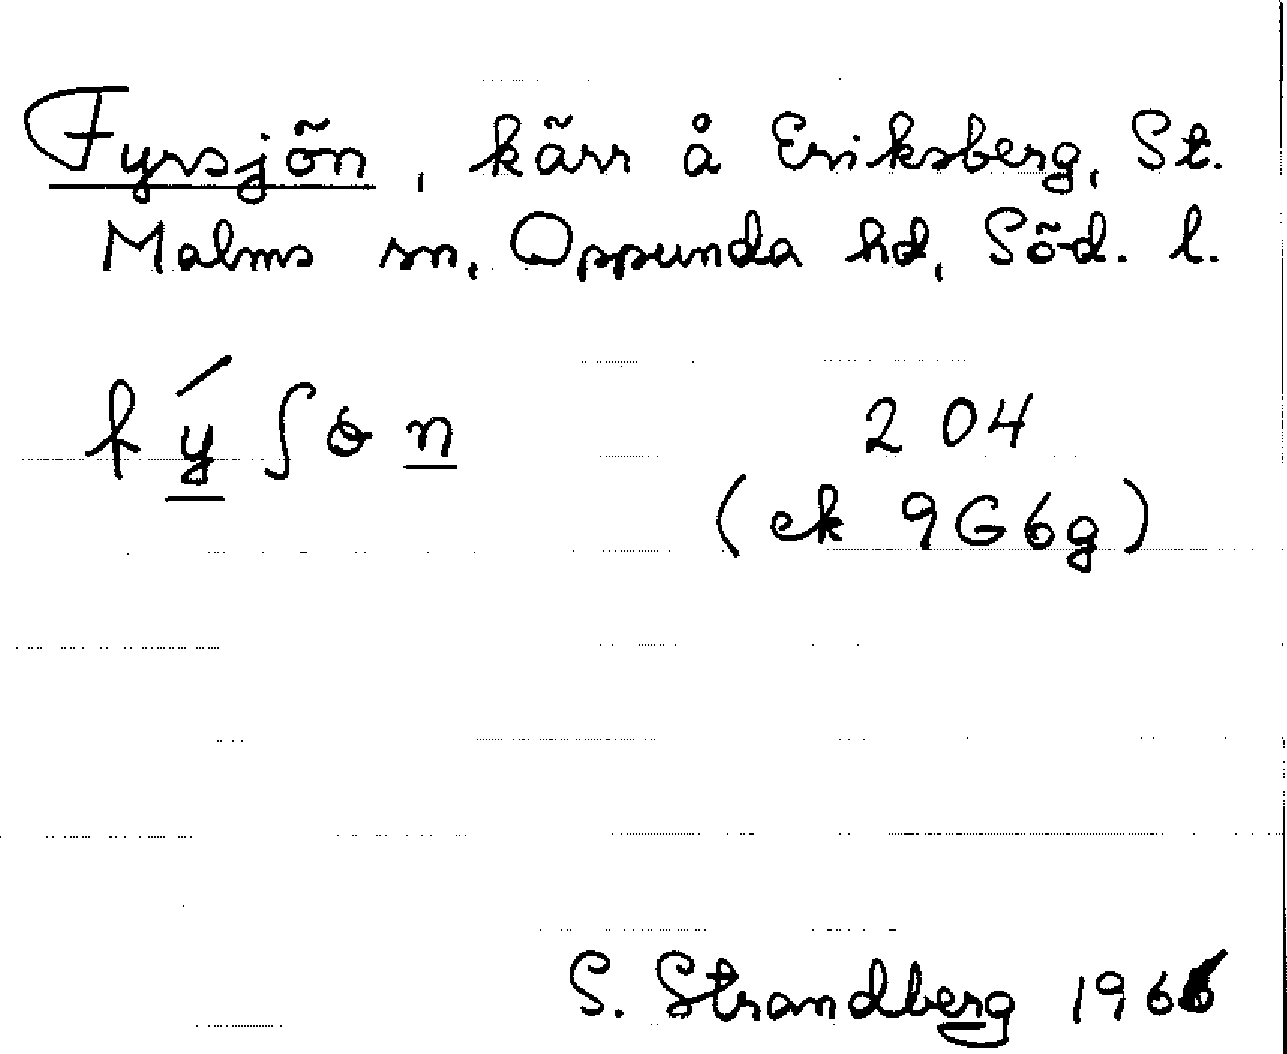 Fyrsjön, kärr å Eriksberg, St.
Malms sn, Oppunda hd, Söd. l.
204
(ek 9G6g)
S. Strandberg 1966